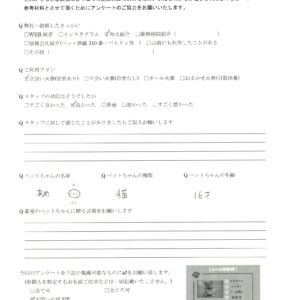 参考資料とさせて頂くためにアンケートのご協力をお願いいたします。
Q 弊社へ依頼したきっかけ?
□WEB検索 □インスタグラム ☑知人紹介 □動物病院紹介( )
□情報会社紹介(ペット葬儀110番・ペトリィ等) □以前にも利用したことがある
□その他( )
Q ご利用プラン
☑立会い火葬(拾骨あり) □立会い火葬(拾骨なし) □オール火葬 □おまかせ火葬(引取供養)
Q スタッフの対応はどうでしたか
□すごく良かった ☑良かった □普通 □悪かった □すごく悪かった
Q スタッフに対して感じたことがありましたらご記入お願いします
Q ペットちゃんの名前 Q ペットちゃんの種類 Q ペットちゃんの年齢
あめ 猫 16才
Q 最愛のペットちゃんに贈る言葉をお願いします
今日のアンケートを下記の掲載可能なものに☑をお願い致します。
(※個人を特定するお名前ご住所などは一切記載いたしません。)
□全て可 □全て不可